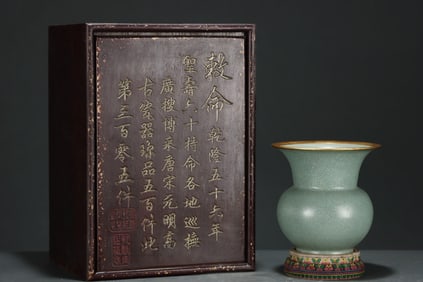 敕命乾隆五十六年
聖壽八十特命各地巡撫
廣搜博采唐宋元明高
古瓷器珍品五百件此
第三百零五件